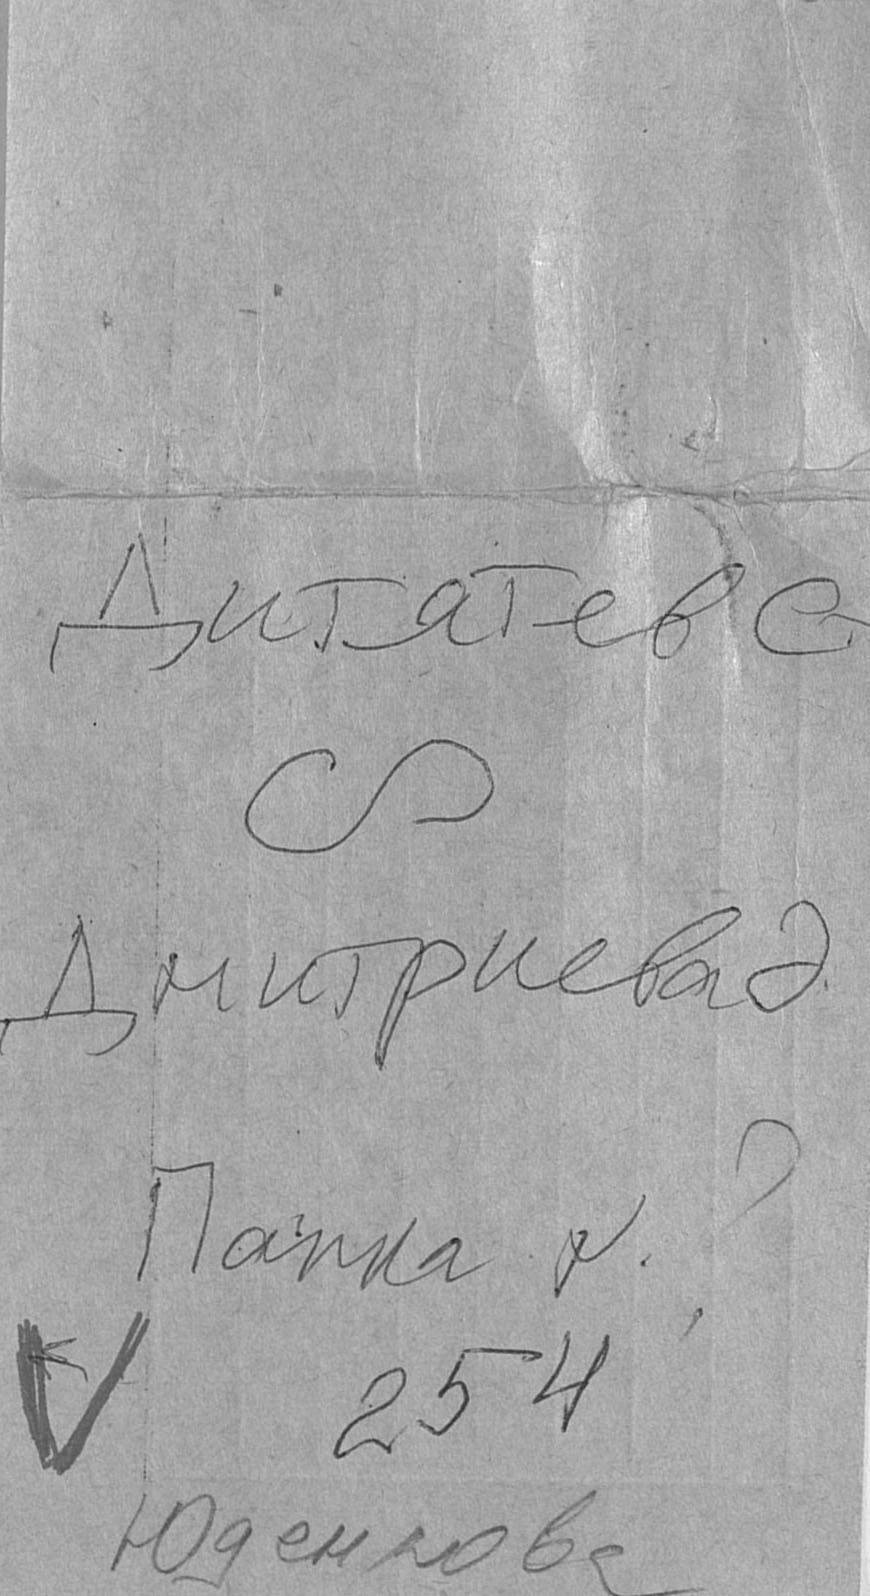 Дитятева
Дмитриева Э.
Папка N. ?
V 254
Юденкова